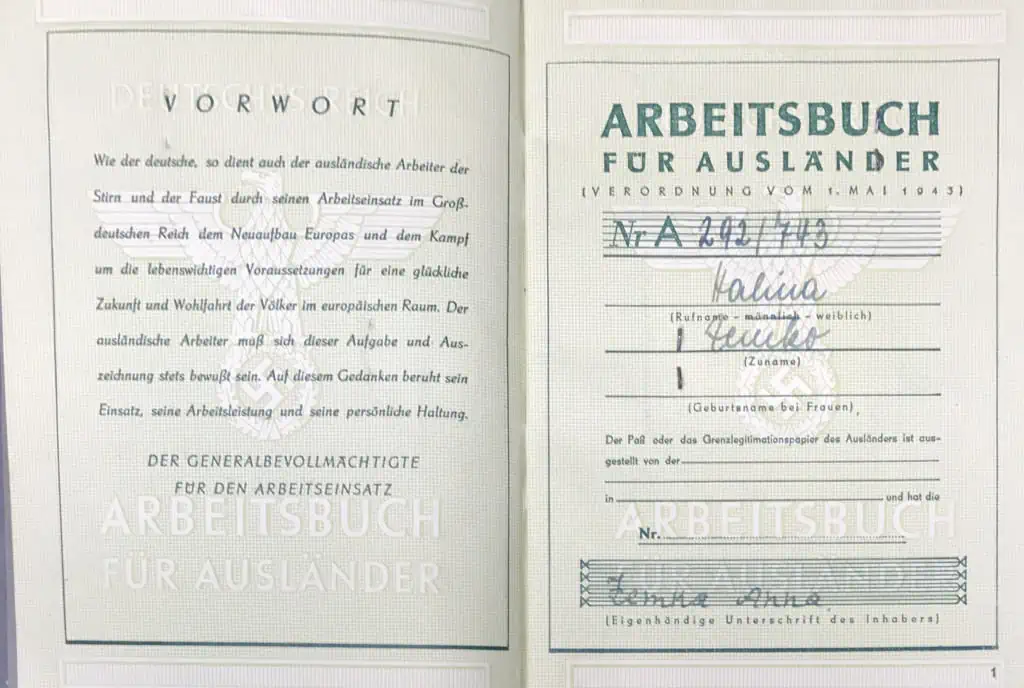 DEUTSCHES REICH
VORWORT
Wie der deutsche, so dient auch der ausländische Arbeiter der
Stirn und der Faust durch seinen Arbeitseinsatz im Groß-
deutschen Reich dem Neuaufbau Europas und dem Kampf
um die lebenswichtigen Voraussetzungen für eine glückliche
Zukunft und Wohlfahrt der Völker im europäischen Raum. Der
ausländische Arbeiter muß sich dieser Aufgabe und Aus-
zeichnung stets bewußt sein. Auf diesem Gedanken beruht sein
Einsatz, seine Arbeitsleistung und seine persönliche Haltung.
DER GENERALBEVOLLMÄCHTIGTE
FÜR DEN ARBEITSEINSATZ
ARBEITSBUCH
FÜR AUSLÄNDER
ARBEITSBUCH
FÜR AUSLÄNDER
(VERORDNUNG VOM 1. MAI 1943)
Nr A 292/743
Halina
(Rufname - männlich - weiblich)
(Zuname)
(Geburtsname bei Frauen)
Der Paß oder das Grenzlegitimationspapier des Ausländers ist aus-
gestellt von der
in und hat die
ARBEITSBUCH
Nr.
FÜR AUSLÄNDER
Anna
(Eigenhändige Unterschrift des Inhabers)
1